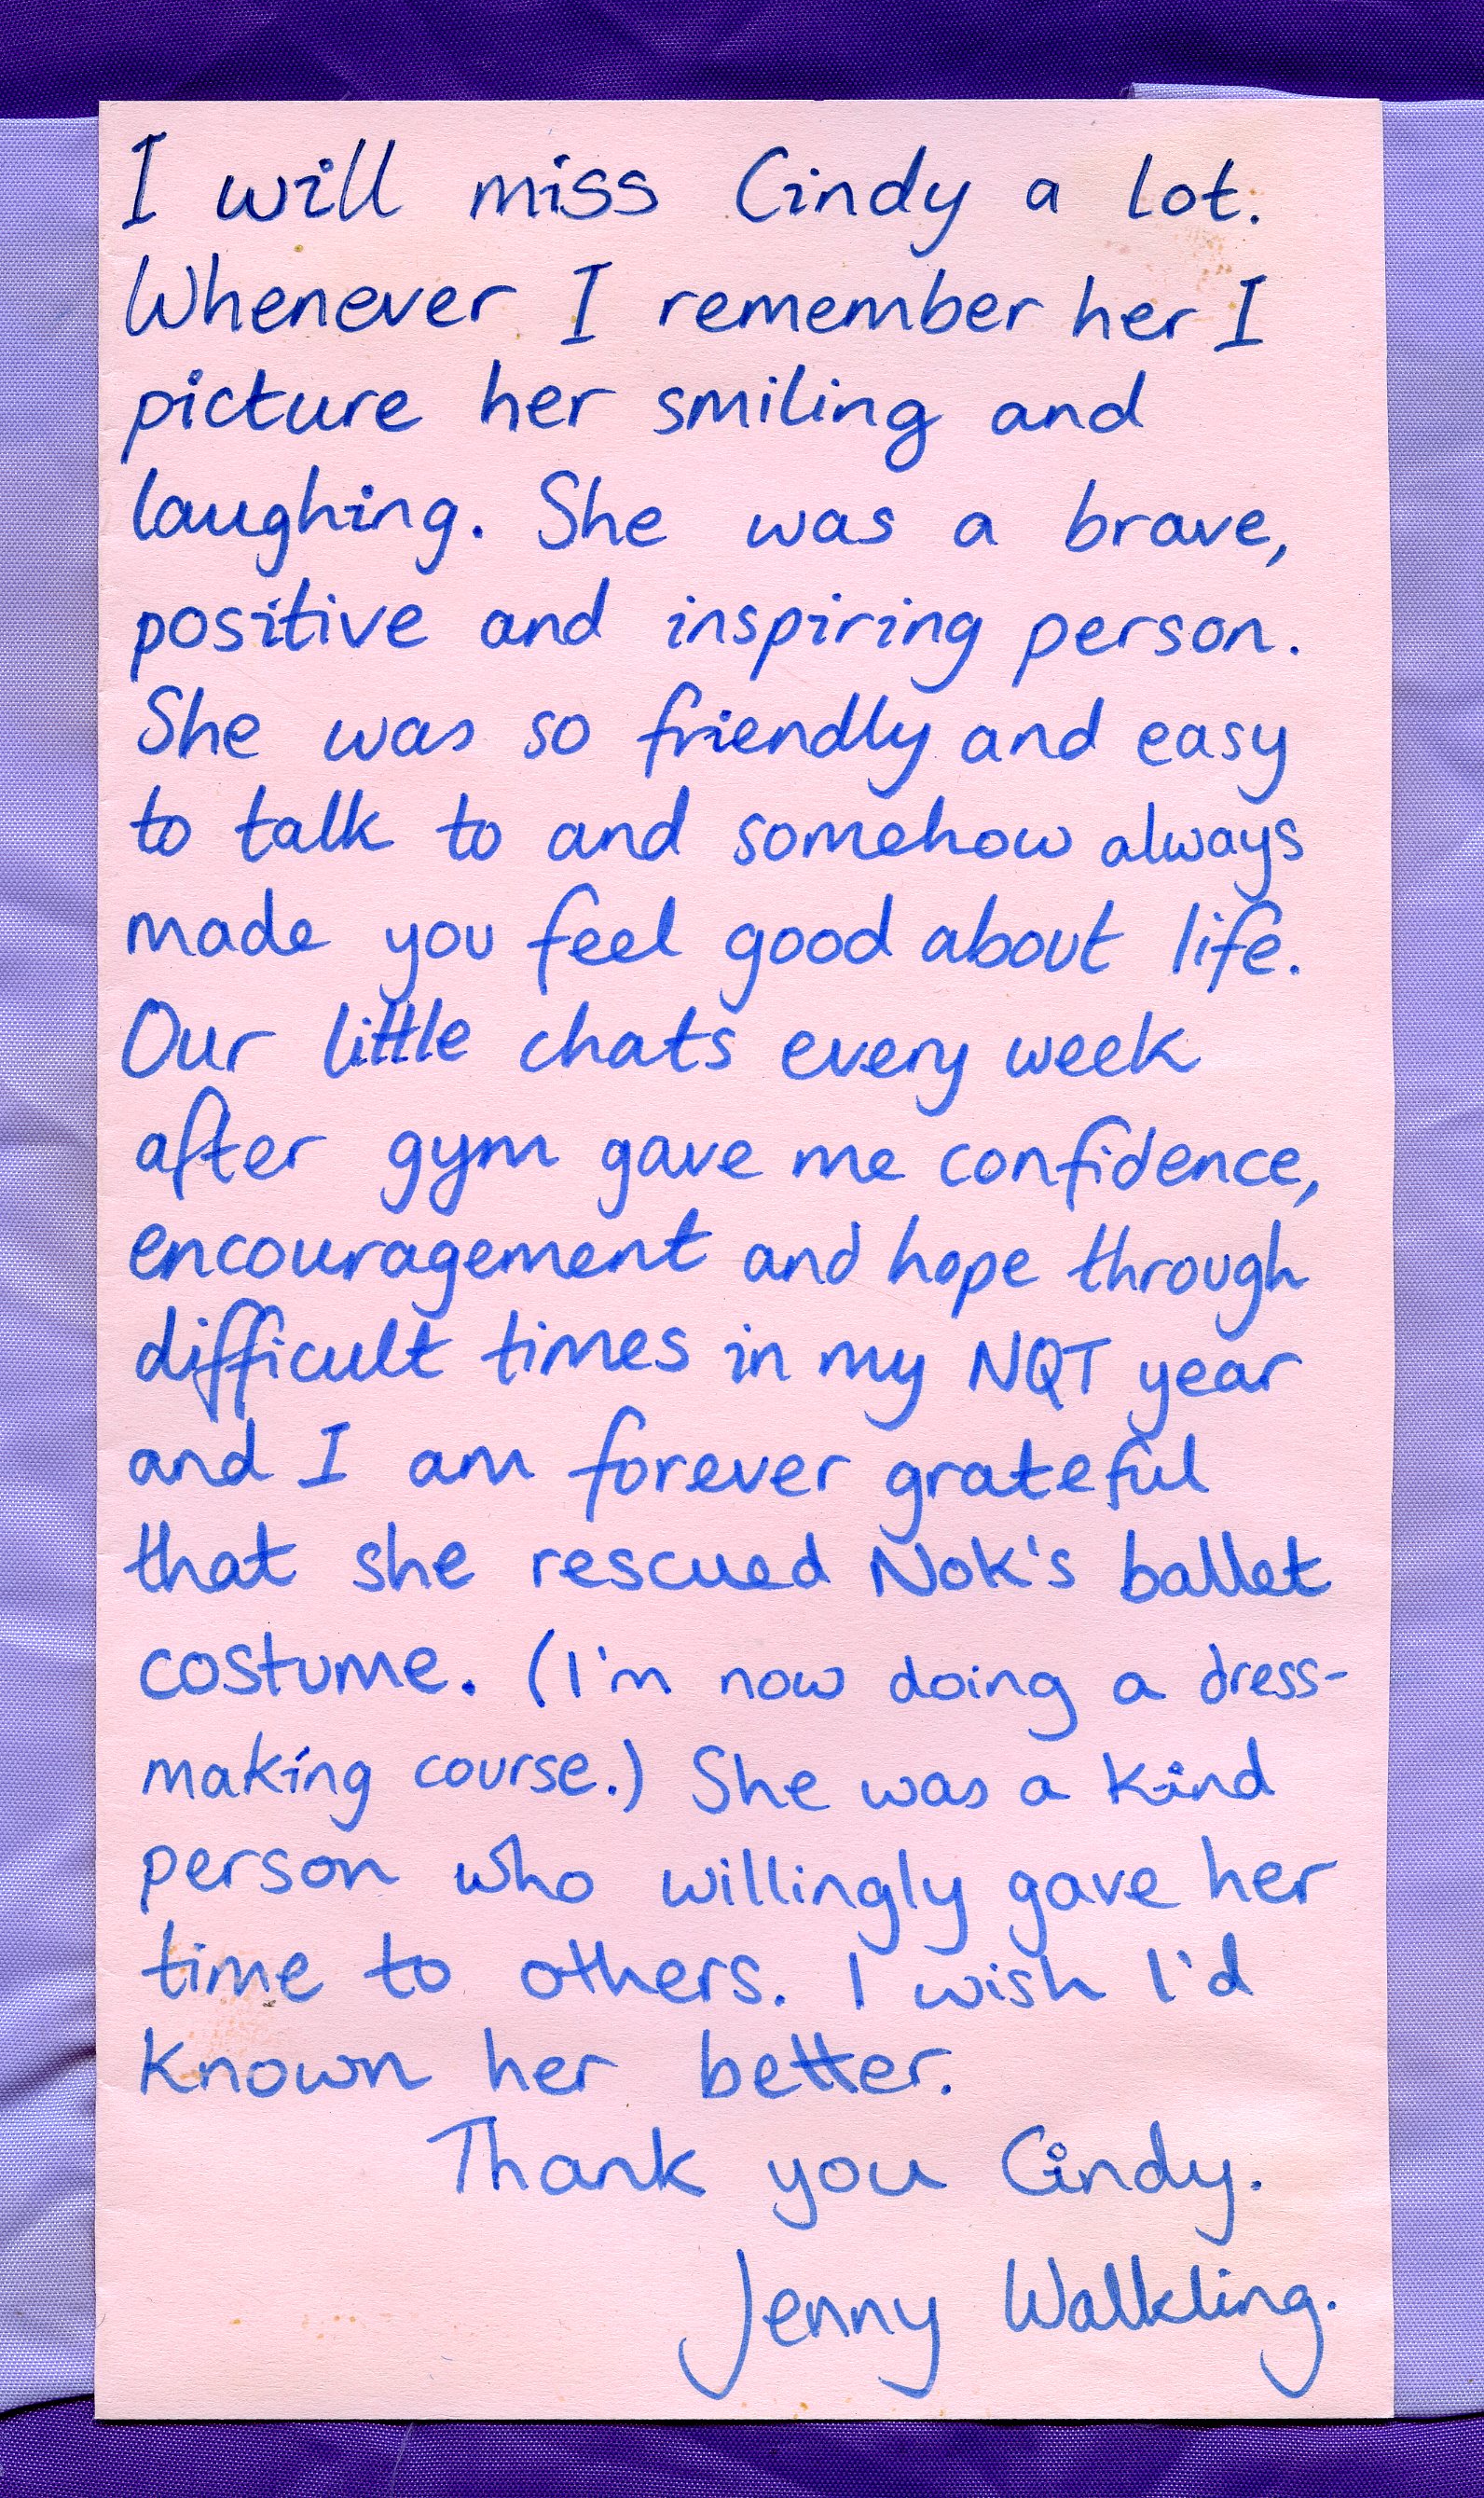 I will miss Cindy a lot.
Whenever I remember her I
picture her smiling and
laughing. She was a brave,
positive and inspiring person.
She was so friendly and easy
to talk to and somehow always
made you feel good about life.
Our little chats every week
after gym gave me confidence,
encouragement and hope through
difficult times in my NQT year
and I am forever grateful
that she rescued Nok's ballet
costume. (I'm now doing a dress-
making course.) She was a kind
person who willingly gave her
time to others. I wish I'd
known her better.
Thank you Cindy.
Jenny Walkling.